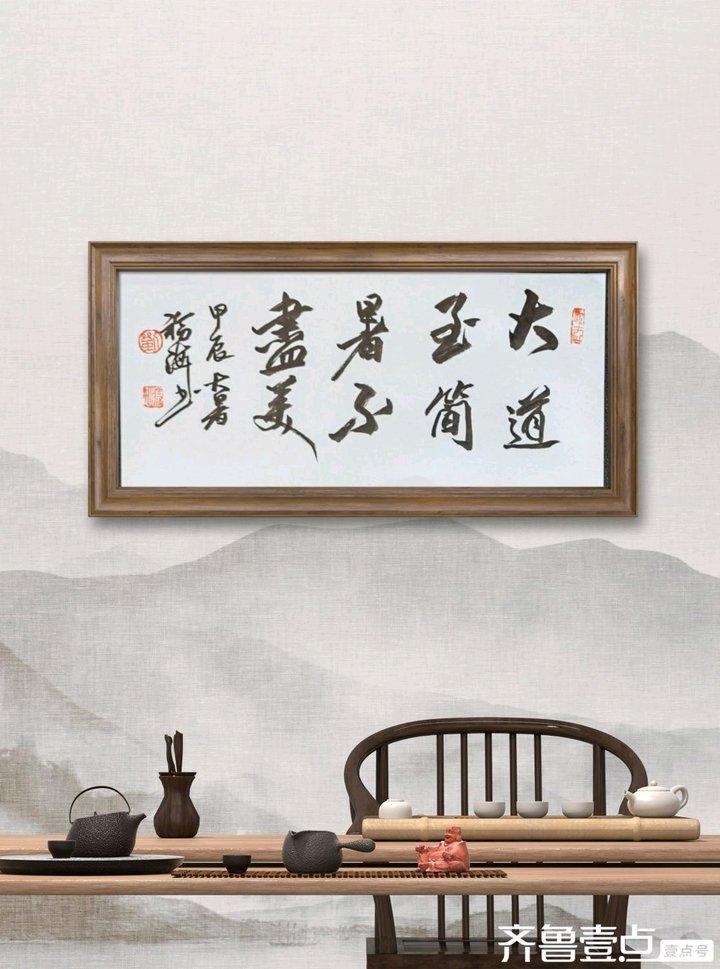 大道
至简
暑不
盡美
甲辰大暑
海书
齐鲁壹点
壹点号